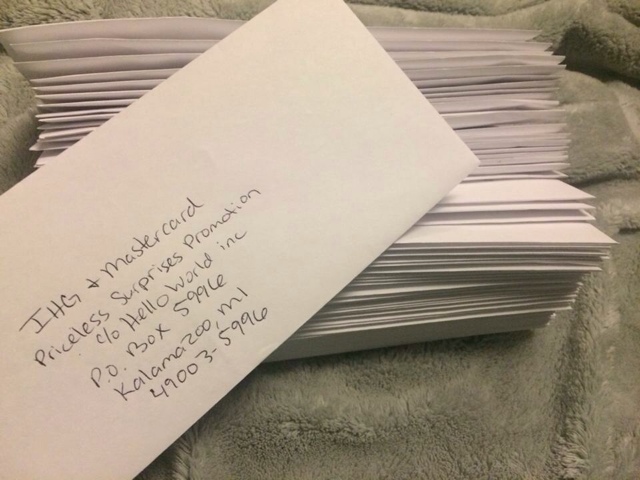 IHG & Mastercard
Priceless Surprises Promotion
c/o Hello World inc
P.O. Box 5996
Kalamazoo, MI
49003-5996